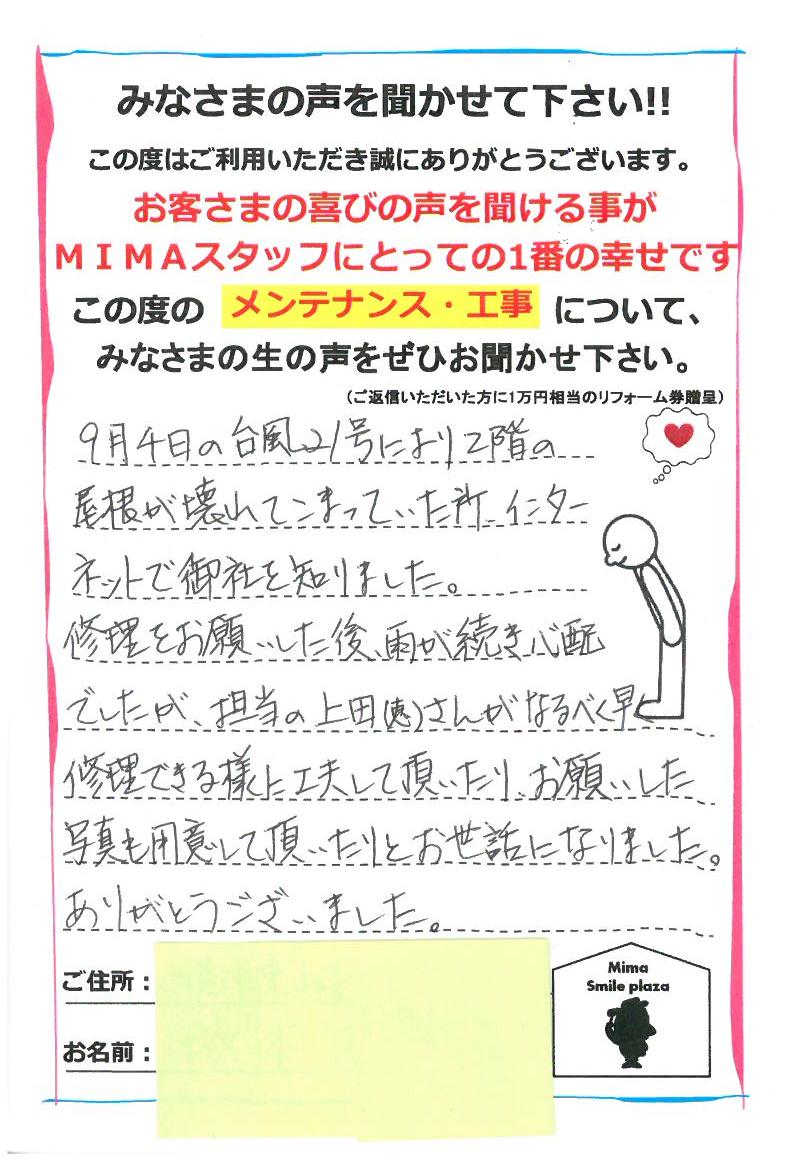 みなさまの声を聞かせて下さい!!
この度はご利用いただき誠にありがとうございます。
お客さまの喜びの声を聞ける事が
ＭＩＭＡスタッフにとっての1番の幸せです
この度の メンテナンス・工事 について、
みなさまの生の声をぜひお聞かせ下さい。
（ご返信いただいた方に1万円相当のリフォーム券贈呈）
9月4日の台風21号により2階の
屋根が壊れてこまっていた所、インター
ネットで御社を知りました。
修理をお願いした後、雨が続き心配
でしたが、担当の上田(恵)さんがなるべく早く
修理できる様に工夫して頂いたり、お願いした
写真も用意して頂いたりとお世話になりました。
ありがとうございました。
ご住所：
お名前：
Mima
Smile plaza